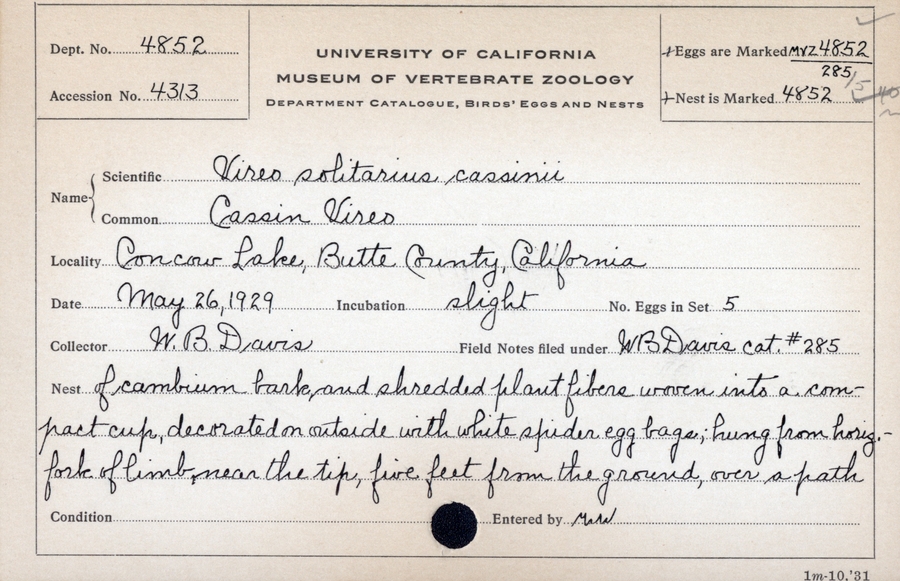 Dept. No. 4852
Accession No. 4313
UNIVERSITY OF CALIFORNIA
MUSEUM OF VERTEBRATE ZOOLOGY
DEPARTMENT CATALOGUE, BIRDS' EGGS AND NESTS
Eggs are Marked MVZ 4852
285/5
Nest is Marked 4852
Name
Scientific Vireo solitarius cassinii
Common Cassin Vireo
Locality Concow Lake, Butte County, California
Date May 26, 1929 Incubation slight No. Eggs in Set 5
Collector W. B. Davis Field Notes filed under WB Davis cat. #285
Nest of cambium bark, and shredded plant fibers woven into a com-
pact cup, decorated on outside with white spider egg bags; hung from horiz.-
fork of limb, near the tip, five feet from the ground, over a path
Condition Entered by
1m-10,'31